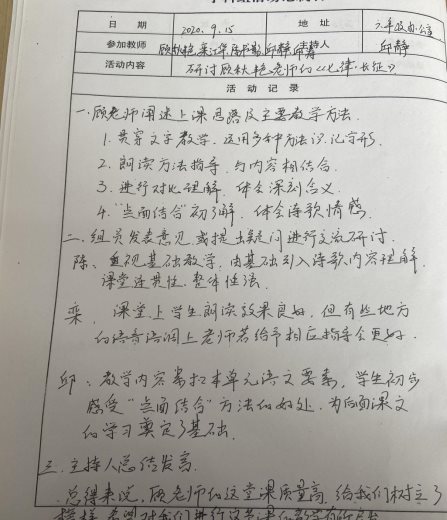 日期 2020.9.15 地址 六年级办公室
参加教师 顾秋艳 陈 邱静 主持人 邱静
活动内容 研讨顾秋艳老师的《七律·长征》
活动记录
一.顾老师阐述上课思路及主要教学方法.
1.贯穿文字教学,运用多种方法识记字形.
2.朗读方法指导,与内容相结合.
3.进行对比理解,体会深刻含义.
4.“点面结合”初了解,体会诗歌情感.
二.组员发表意见或提出疑问进行交流研讨.
陈、重视基础教学,由基础引入诗歌内容理解,
课堂连贯性、整体性强.
栾、课堂上学生朗读效果良好,但有些地方
的语音语调上老师若给予相应指导会更好.
邱:教学内容紧扣本单元语文要素,学生初步
感受“点面结合”方法的好处,为后面课文
的学习奠定了基础.
三.主持人总结发言.
总得来说,顾老师的这堂课质量高,给我们树立了
榜样,